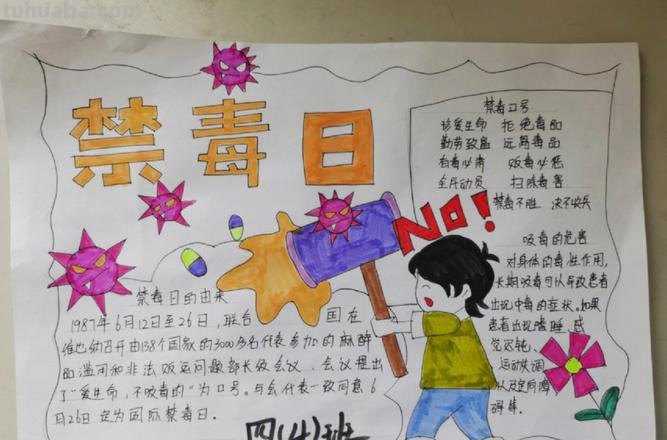 tuhuaba.com
禁毒日
NO!
禁毒口号
珍爱生命 拒绝毒品
勤劳致富 远离毒品
有毒必肃 贩毒必惩
全民动员 扫除毒害
禁毒不胜 决不收兵
吸毒的危害
对身体的毒性作用,
长期吸毒可以导致患者
出现中毒的症状。如果
患者出现嗜睡、感
觉迟钝、
运动失调
以及定向障
碍等。
禁毒日的由来
1987年6月12日至26日,联合国在
维也纳召开由138个国家的3000多名代表参加的麻醉
品滥用和非法贩运问题部长级会议,会议提出
了“爱生命,不吸毒的”为口号。与会代表一致同意6
月26日定为国际禁毒日。
四(4)班